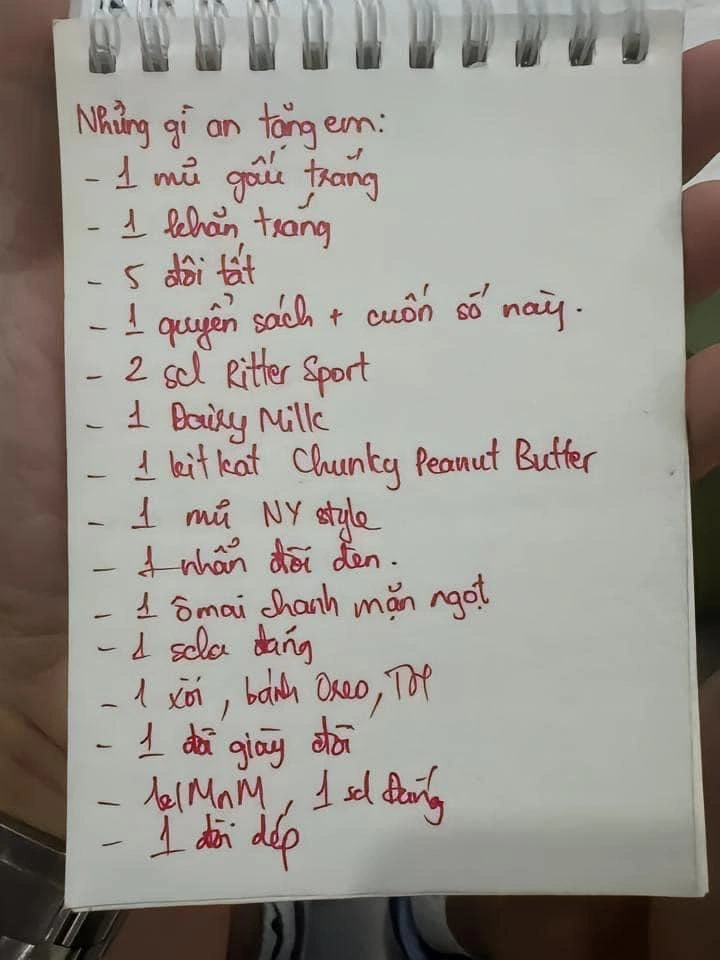 Những gì an tặng em:
- 1 mũ gấu trắng
- 1 khăn trắng
- 5 đôi tất
- 1 quyển sách + cuốn số này.
- 2 scl Ritter Sport
- 1 Dairy Milk
- 1 kitkat Chunky Peanut Butter
- 1 mũ NY style
- 1 nhẫn đôi đen.
- 1 ômai chanh mặn ngọt
- 1 scla đắng
- 1 xôi, bánh Oreo,
- 1 đôi giày đôi
- MnM, 1 scl Đắng
- 1 đôi dép